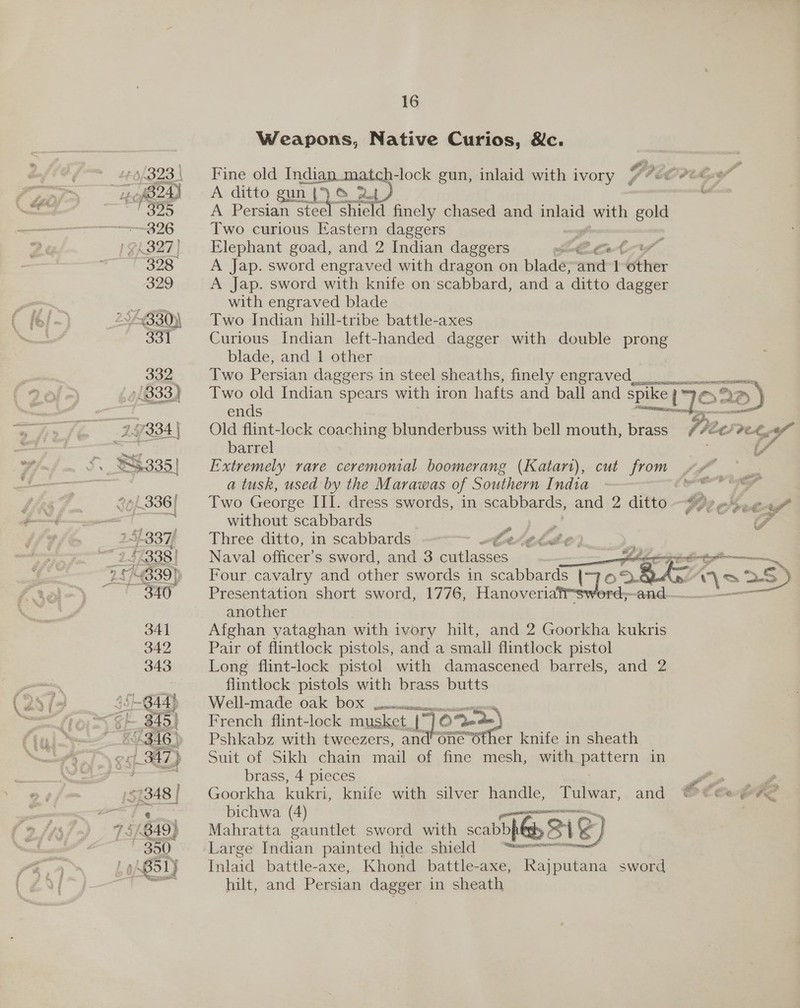 16
Weapons, Native Curios, &c.
323 Fine old Indian match-lock gun, inlaid with ivory
324 A ditto gun
325 A Persian steel shield finely chased and inlaid with gold
326 Two curious Eastern daggers
327 Elephant goad, and 2 Indian daggers
328 A Jap. sword engraved with dragon on blade, and 1 other
329 A Jap. sword with knife on scabbard, and a ditto dagger
with engraved blade
330 Two Indian hill-tribe battle-axes
331 Curious Indian left-handed dagger with double prong
blade, and 1 other
332 Two Persian daggers in steel sheaths, finely engraved
333 Two old Indian spears with iron hafts and ball and spike
ends
334 Old flint-lock coaching blunderbuss with bell mouth, brass
barrel
335 Extremely rare ceremonial boomerang (Katari), cut from
a tusk, used by the Marawas of Southern India
336 Two George III. dress swords, in scabbards, and 2 ditto
without scabbards
337 Three ditto, in scabbards
338 Naval officer's sword, and 3 cutlasses
339 Four cavalry and other swords in scabbards
340 Presentation short sword, 1776, Hanoverian sword, and
another
341 Afghan yataghan with ivory hilt, and 2 Goorkha kukris
342 Pair of flintlock pistols, and a small flintlock pistol
343 Long flint-lock pistol with damascened barrels, and 2
flintlock pistols with brass butts
344 Well-made oak box
345 French flint-lock musket
346 Pshkabz with tweezers, and one other knife in sheath
347 Suit of Sikh chain mail of fine mesh, with pattern in
brass, 4 pieces
348 Goorkha kukri, knife with silver handle, Tulwar, and
bichwa (4)
349 Mahratta gauntlet sword with scabbard
350 Large Indian painted hide shield
351 Inlaid battle-axe, Khond battle-axe, Rajputana sword
hilt, and Persian dagger in sheath